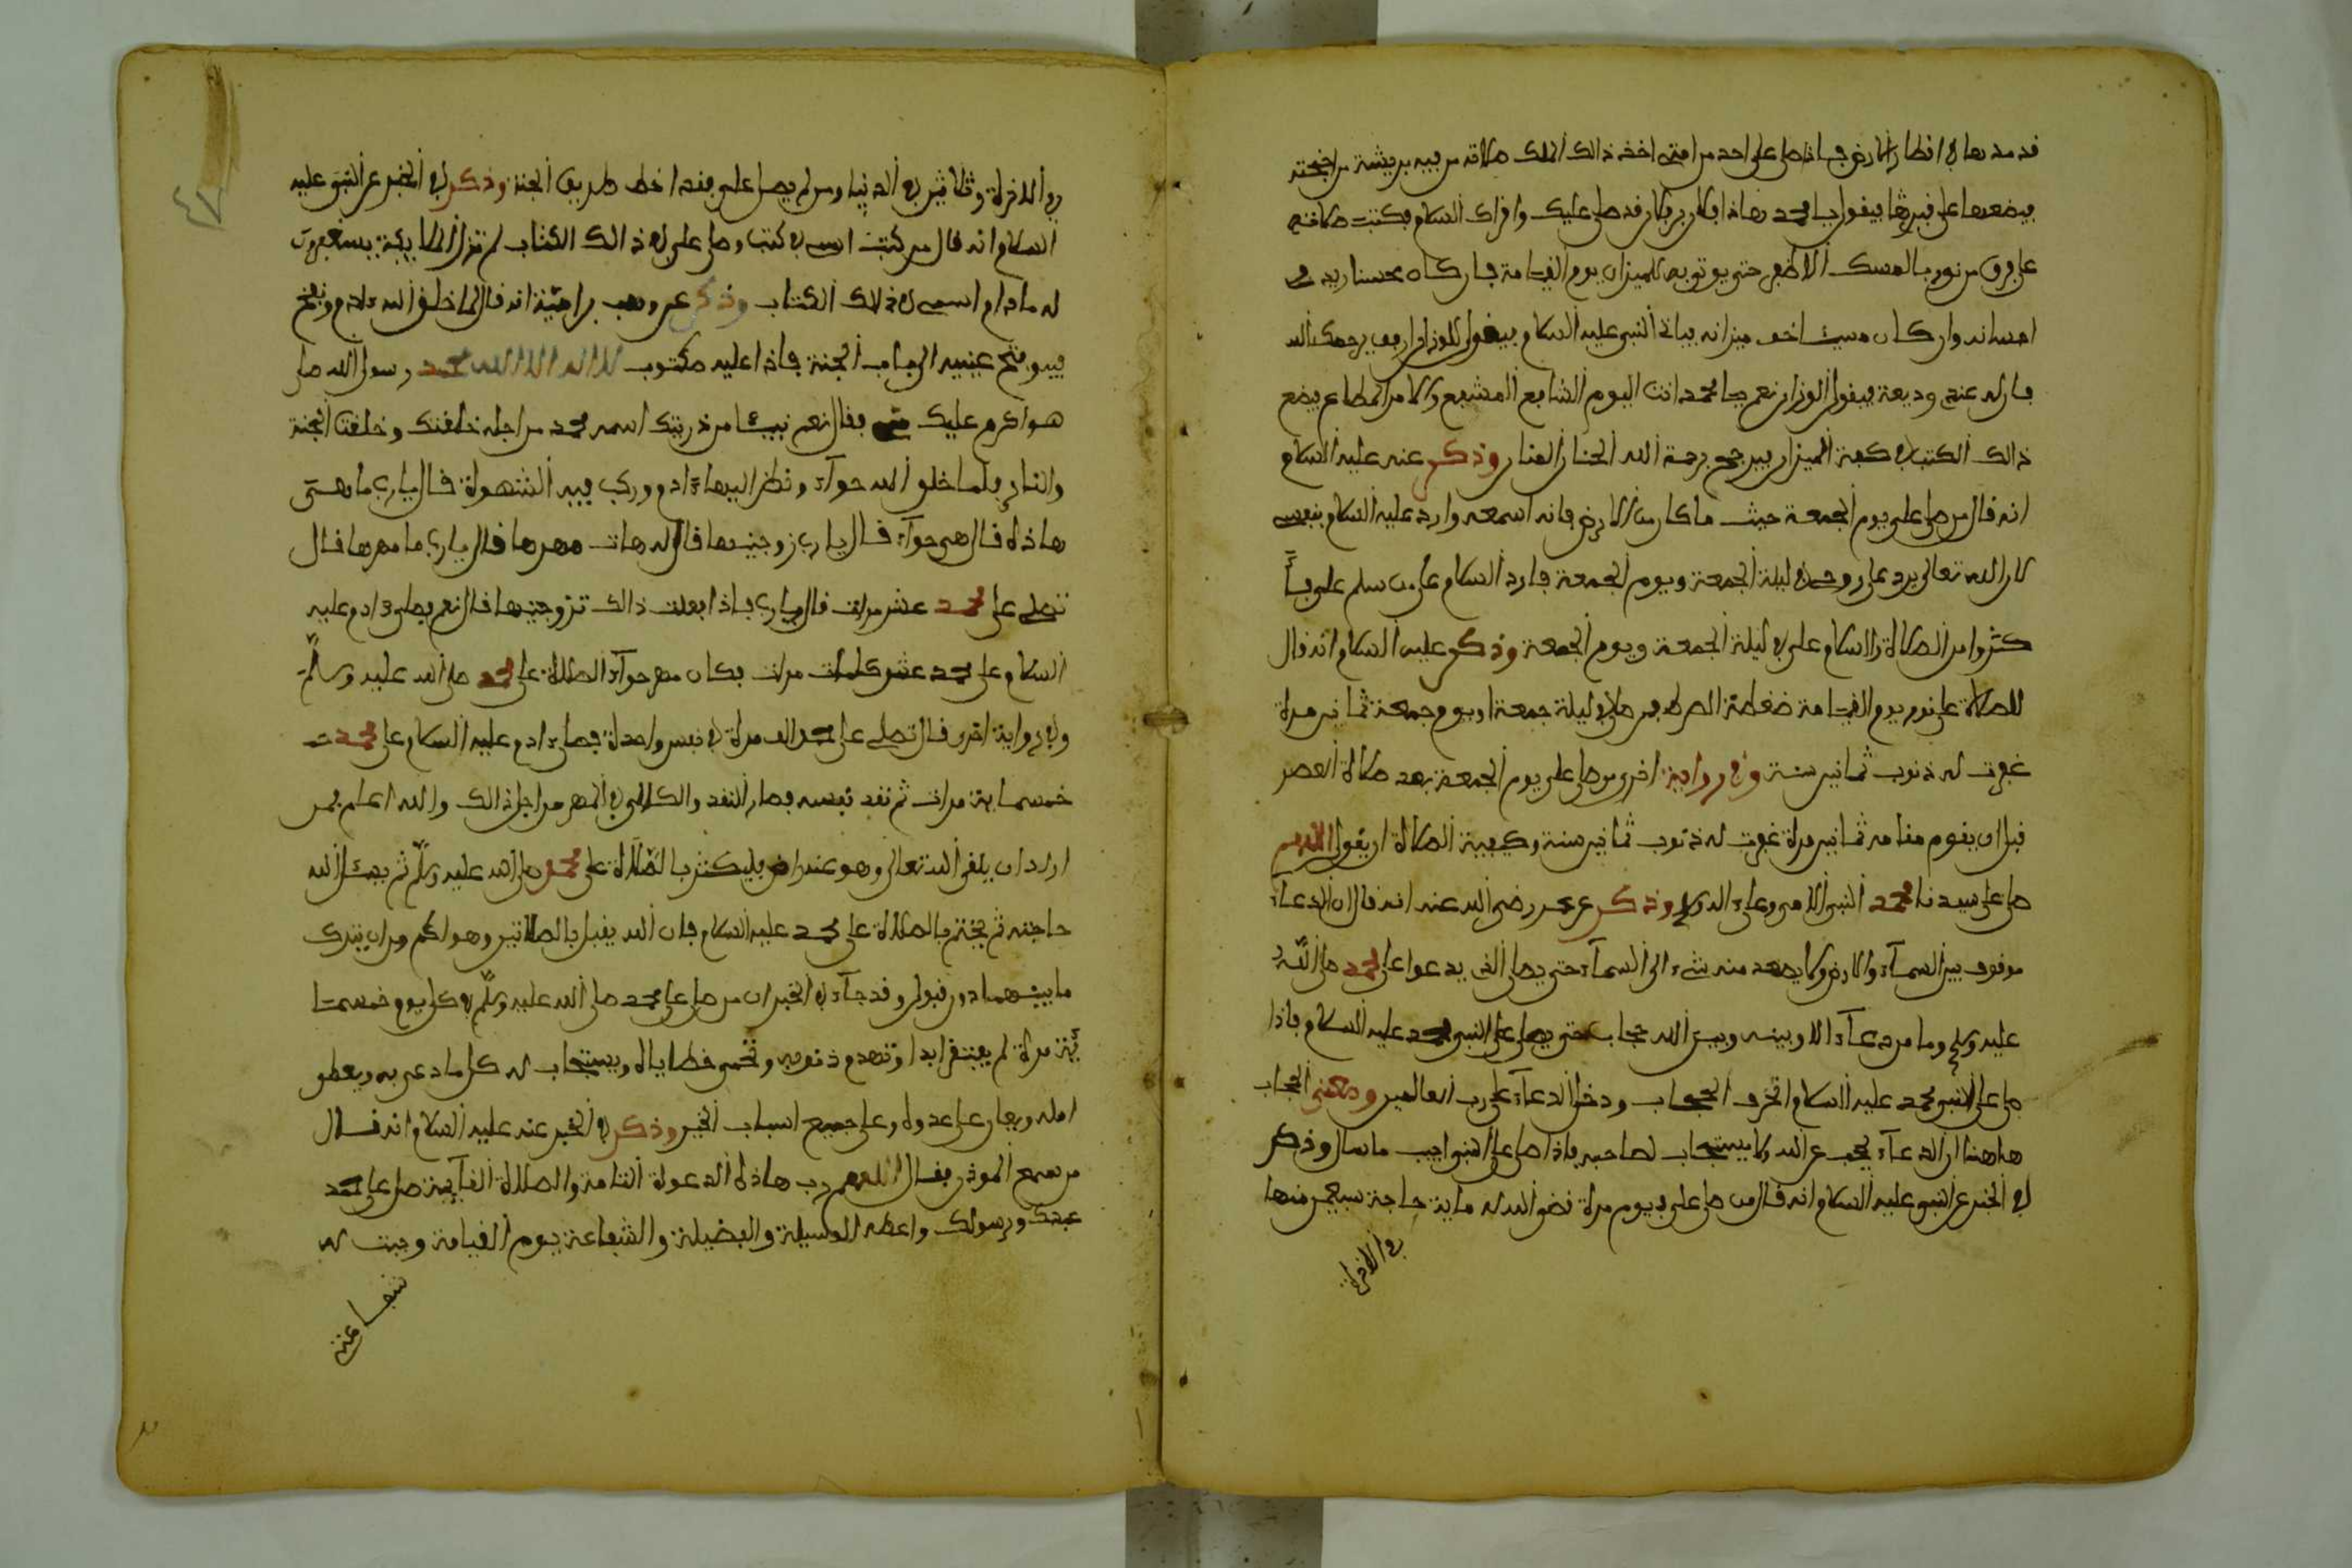 قد مدها في اقطار الارض فاذا صلى على احد من امتي اخذ ذالك الملك صلاته من فيه بريشة من اجنحته
فيضعها على قبرها فيقول يا محمد هاذا فلان بن فلان قد صلى عليك واقراك السلام فكتبت صلاته
على ورق من نور بالمسك الاظفر حتى يوتى به للميزان يوم القيامة فان كان محسنا زيد في
احسانه وان كان مسيئا خف ميزانه فياتي النبي عليه السلام فيقول للوزان ارفق يرحمك الله
فان له عندي وديعة فيقول الوزان نعم يا محمد انت اليوم الشافع المشفع والامر المطاع فيضع
ذالك الكتب في كفة الميزان فيرجح برحمة الله الحنان المنان وذكر عنه عليه السلام
انه قال من صلى علي يوم الجمعة حيث ما كان من الارض فانه اسمعه وارد عليه السلام بنفسي
لان الله تعالى يرد على روحي في ليلة الجمعة ويوم الجمعة فارد السلام على من سلم علي فأ
كثروا من الصلاة والسلام علي في ليلة الجمعة ويوم الجمعة وذكر عليه السلام انه قال
للصلاة علي نور يوم القيامة ضغطة الصراط فمن صلى في ليلة جمعة او يوم جمعة ثمانين مرة
غفرت له ذنوب ثمانين سنة وفي رواية اخرى من صلى علي يوم الجمعة بعد صلاة العصر
قبل ان يقوم مقامه ثمانين مرة غفرت له ذنوب ثمانين سنة وكيفية الصلاة ان يقول اللهم
صل على سيدنا محمد النبي الامي وعلى اله وذكر عن عمر رضي الله عنه انه قال ان الدعاء
موقوف بين السماء والارض ولا يصعد منه شيء الى السماء حتى يصلي الذي يدعوا على محمد صلى الله
عليه وسلم وما من دعاء الا وبينه وبين الله حجاب حتى يصلي على النبي محمد عليه السلام فاذا
صلى على النبي محمد عليه السلام انخرق الحجاب ودخل الدعاء على رب العالمين ومعنى الحجاب
هاهنا ان الدعاء يحجب عن الله ولا يستجاب لصاحبه فاذا صلى على النبي اجيب ما سال وذكر
في الخبر عن النبي عليه السلام انه قال من صلى علي في يوم مرة قضى الله له ماية حاجة سبعين منها
في الاخرة
في الاخرة وثلاثين في الدنيا ومن لم يصل علي فقد اخطا طريق الجنة وذكر في الخبر عن النبي عليه
السلام انه قال من كتب اسمي في كتب وصلى علي في ذالك الكتاب لم تزل الملايكة يستغفرون
له ما دام اسمي في ذالك الكتاب وذكر عن وهب بن امية انه قال لما خلق الله ءادم ونفخ
فيه وفتح عينيه الى باب الجنة فاذا عليه مكتوب لا اله الا الله محمد رسول الله صلى
هو اكرم عليك مني فقال نعم نبيئا من ذريتك اسمه محمد من اجله خلقتك وخلقت الجنة
والنار فلما خلق الله حواء ونظر اليها ءادم وركب فيه الشهوة قال يا رب ما هي
هاذه قال هي حواء قال يا رب زوجنيها قال له هات مهرها قال يا رب ما مهرها قال
تصلي على محمد عشر مرات قال يا رب فاذا فعلت ذالك تزوجنيها قال نعم فصلى ءادم عليه
السلام على محمد عشر مرات فكان مهر حواء الصلاة على محمد صلى الله عليه وسلم
وفي رواية اخرى قال تصلي على محمد الف مرة في نفس واحدة فصلى ءادم عليه السلام على محمد
خمسماية مرات ثم نفد نفسه فصار النقد والكالي في المهر من اجل ذالك والله اعلم فمن
اراد ان يلقى الله تعالى وهو عنه راض فليكثر بالصلاة على محمد صلى الله عليه وسلم ثم يسئل الله
حاجته ثم يختم بالصلاة على محمد عليه السلام فان الله يقبل بالصلاتين وهو اكرم من ان يترك
ما بينهما دون قبول وقد جاء في الخبر ان من صلى على محمد صلى الله عليه وسلم في كل يوم خمسما
ئة مرة لم يفتقر ابدا وتهدم ذنوبه وتمحى خطاياه ويستجاب له كل ما دعى به ويعطى
امله ويعان على عدوه وعلى جميع اسباب الخير وذكر في الخبر عنه عليه السلام انه قال
من سمع الموذن فقال اللهم رب هاذه الدعوة التامة والصلاة القايمة صل على محمد
عبدك ورسولك واعطه الوسيلة والفضيلة والشفاعة يوم القيامة وجبت له
شفاعتي